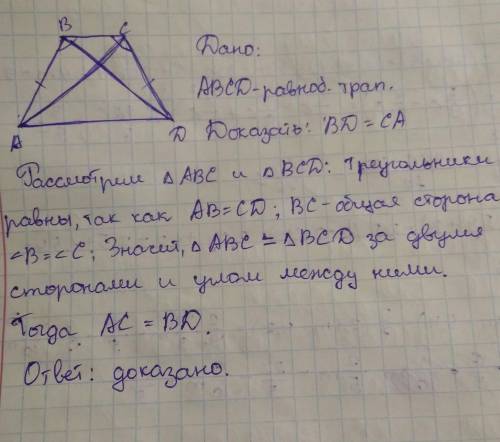 B C
Дано:
ABCD-равноб. трап.
A D Доказать: BD = CA
Рассмотрим △ABC и △BCD: Треугольники
равны, так как AB=CD; BC-общая сторона
∠B=∠C; Значит, △ABC = △BCD за двумя
сторонами и углом между ними.
Тогда AC = BD.
Ответ: доказано.